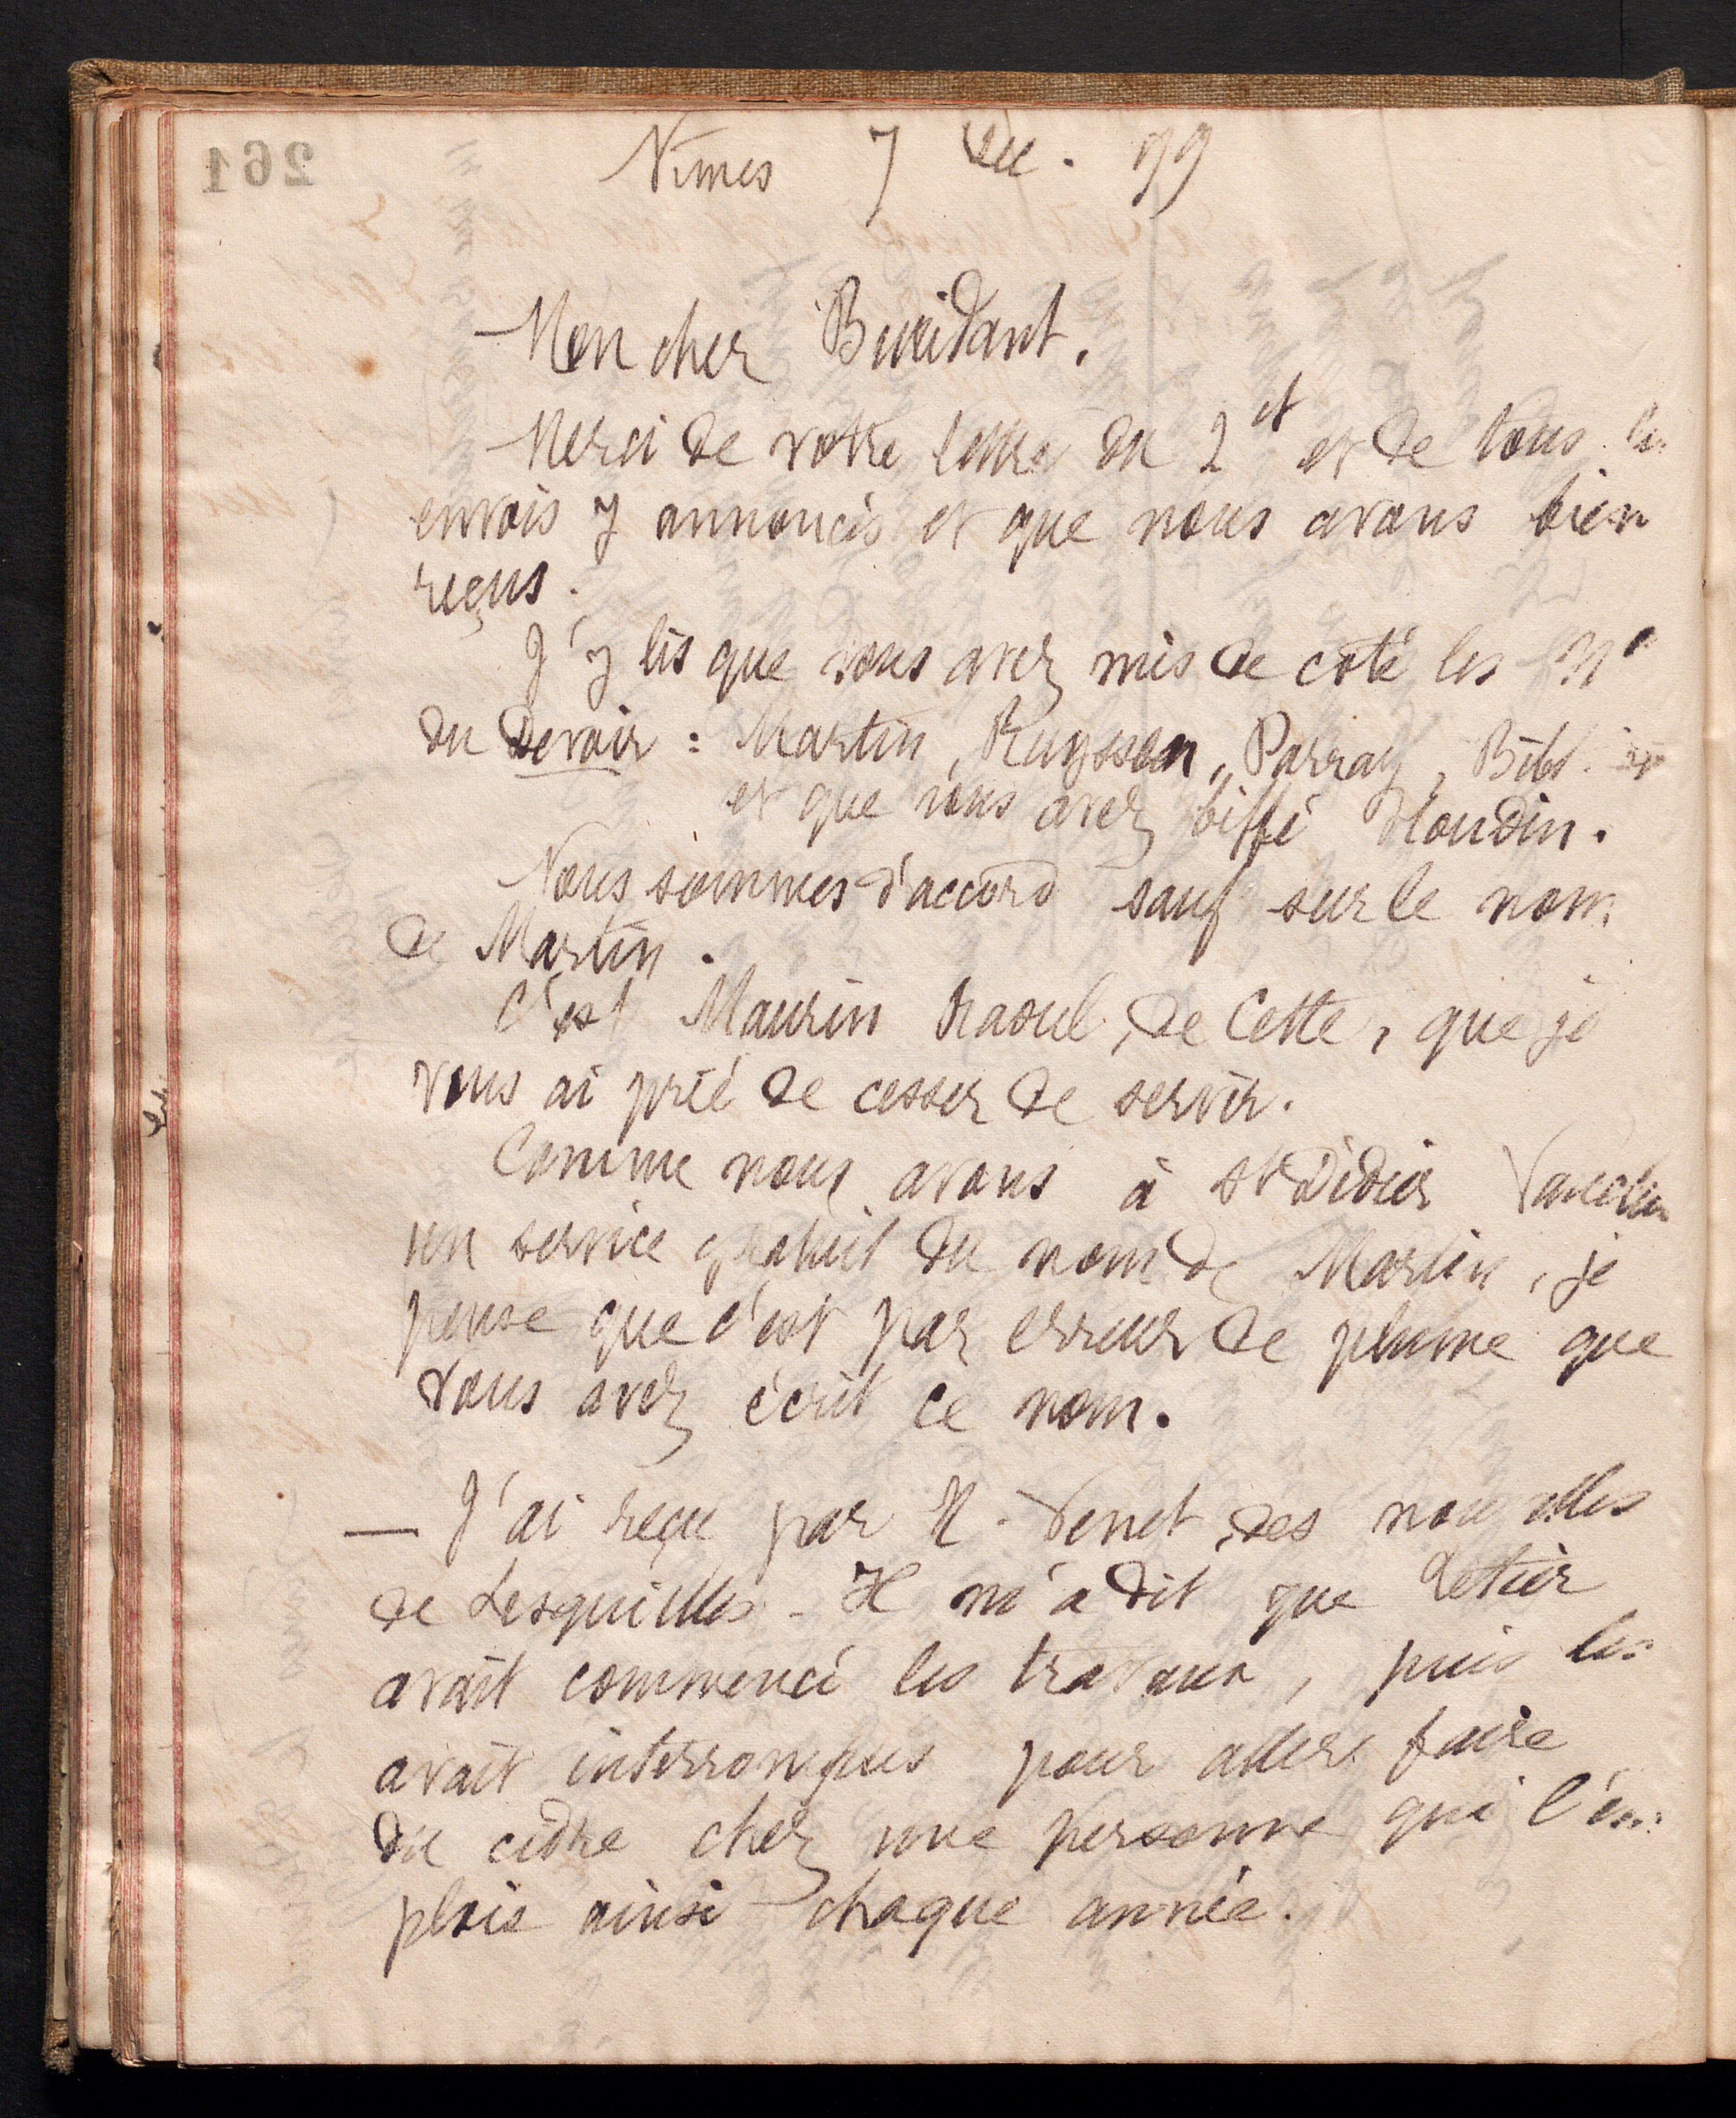 261
Nimes 7 Dec. 99
Mon cher Buridant.
Merci de votre lettre du 2 ct et de tous les
envois y annoncés et que nous avons bien
reçus.
J'y lis que vous avez mis de coté les Nos
du Devoir : Martin, Ruyssen, Parray, Bibl.
et que vous avez biffé Houdin.
Nous sommes d'accord sauf sur le nom
de Martin.
C'est Maurin Raoul, de Cette, que je
vous ai prié de cesser de servir.
Comme nous avons à St Didier Vaucluse
un service gratuit du nom de Martin, je
pense que c'est par erreur de plume que
vous avez écrit ce nom.
— J'ai reçu par H. Venet, des nouvelles
de Lesquilles - Il m'a dit que Letier
avait commencé les travaux, puis les
avait interrompus pour aller faire
du cidre chez une personne qui l'em
ploie ainsi chaque année.